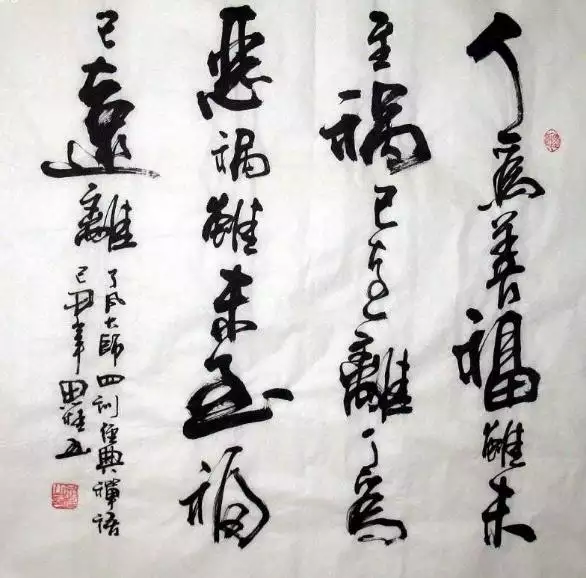 人為善福雖未
至禍已遠離人為
惡禍雖未至福
已遠離
了凡大師四训经典禪语
己丑年田